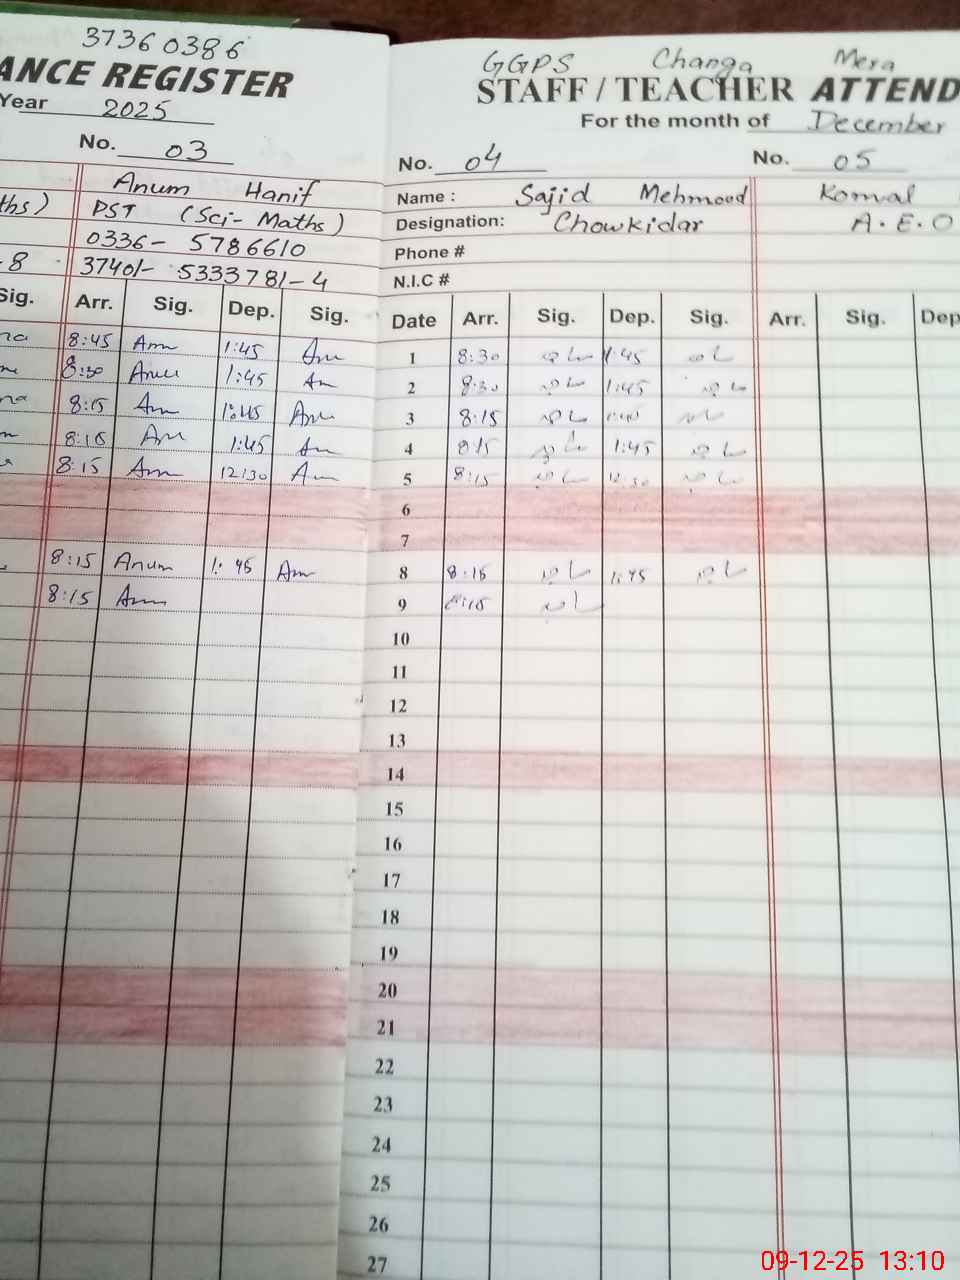 37360386
ANCE REGISTER
Year 2025
No. 03
Anum Hanif
ths) PST (Sci- Maths)
0336- 5786610
-8 37401- 5333781-4
Sig. Arr. Sig. Dep. Sig.
8:45 1:45
8:30 1:45
8:15 1:45
8:15 1:45
8:15 12:30
8:15 Anum 1:45
8:15
GGPS Changa Mera
STAFF / TEACHER ATTEND
For the month of December
No. 04 No. 05
Name : Sajid Mehmood Komal
Designation: Chowkidar A.E.O
Phone #
N.I.C #
Date Arr. Sig. Dep. Sig. Arr. Sig. Dep
1 8:30 ساجد 1:45 ساجد
2 8:30 ساجد 1:45 ساجد
3 8:15 ساجد 1:45 ساجد
4 8:15 ساجد 1:45 ساجد
5 8:15 ساجد 12:30 ساجد
6
7
8 8:15 ساجد 1:45 ساجد
9 8:15 ساجد
10
11
12
13
14
15
16
17
18
19
20
21
22
23
24
25
26
27
09-12-25 13:10